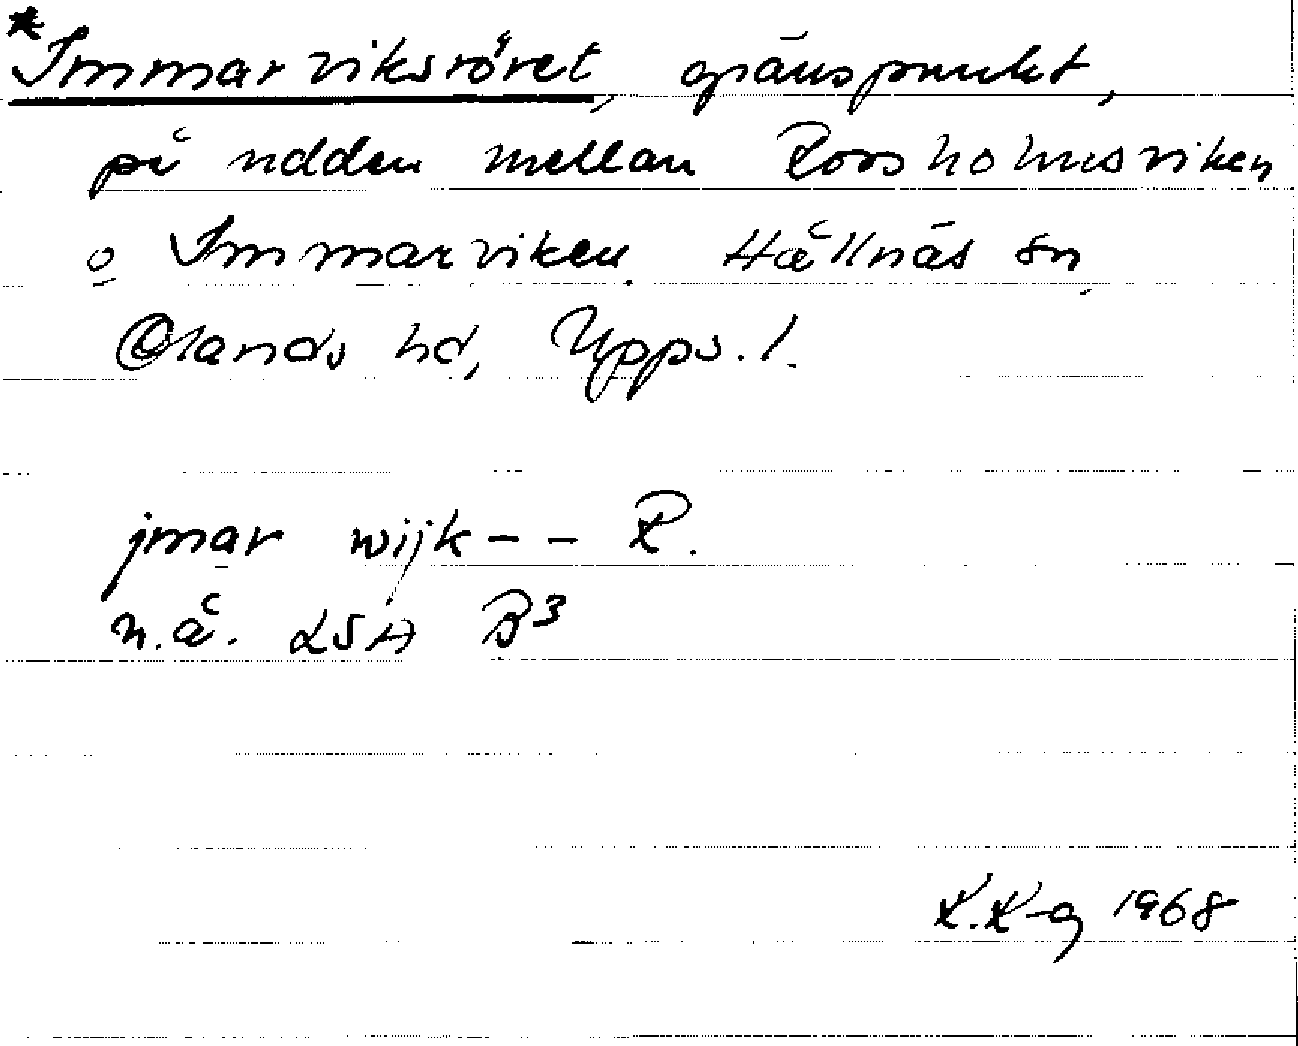 *Immarviksröret, gränspunkt,
på udden mellan Roosholmsviken
o Immarviken. Hållnäs sn,
Olands hd, Upps. l.
jmar wijk - - R.
n.å. LSA B³
K.K-g 1968